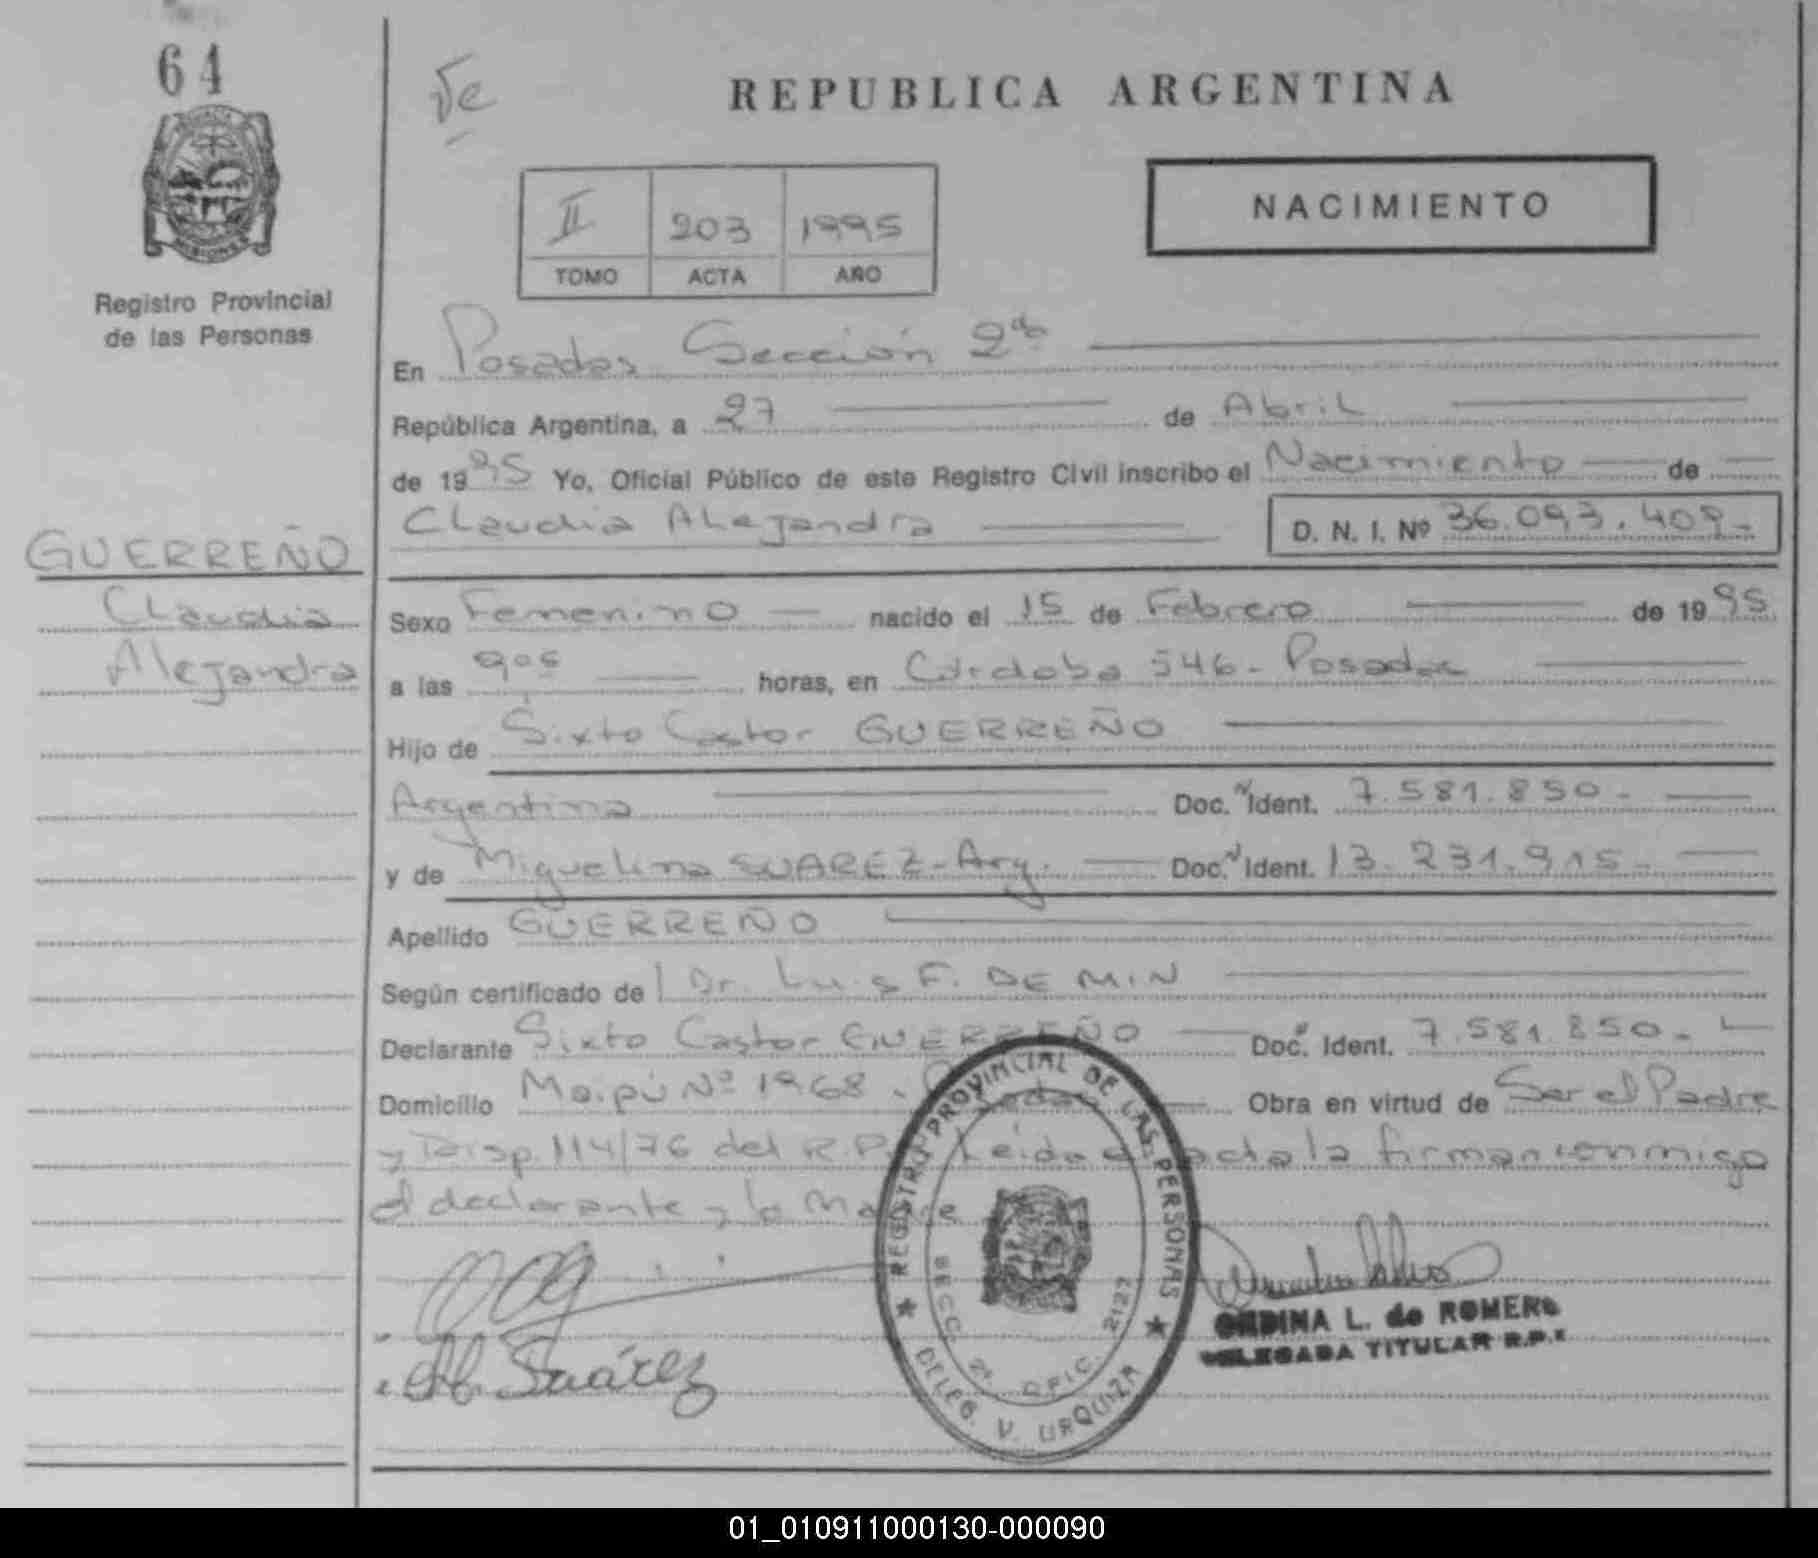 64
Registro Provincial
de las Personas
REPUBLICA ARGENTINA
II 203 1995
TOMO ACTA AÑO
NACIMIENTO
En Posadas Sección 2da
República Argentina, a 27 de Abril
de 1995 Yo, Oficial Público de este Registro Civil inscribo el Nacimiento de
Claudia Alejandra D. N. I. Nº 36.093.409
GUERREÑO
Claudia
Alejandra
Sexo Femenino nacido el 15 de Febrero de 1995
a las 9:05 horas, en Córdoba 546 - Posadas
Hijo de Sixto Castor GUERREÑO
Argentina Doc. N Ident. 7.581.850 -
y de Miguelina SUAREZ - Arg. Doc. N Ident. 13.231.915 -
Apellido GUERREÑO
Según certificado de Dr. Luis F. DE MIN
Declarante Sixto Castor GUERREÑO Doc. Ident. 7.581.850 -
Domicilio Maipú Nº 1968 - Posadas Obra en virtud de Ser el Padre
y Disp. 114/76 del R.P. Leída el acta la firman conmigo
el declarante y la Madre
Suárez
REGISTRO PROVINCIAL DE LAS PERSONAS
SECC. 2ª. OFIC. 2127
DELEG. V. URQUIZA
L. de ROMERO
DELEGADA TITULAR R.P.
01_010911000130-000090